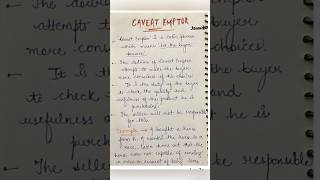 CAVEAT EMPTOR
Caveat Emptor is a Latin phrase
which means "let the buyer
beware".
The doctrine of Caveat Emptor
attempts to make the buyer
more conscious of his choices.
It is the duty of the buyer
to check the quality and
usefulness of the product he is
purchasing.
The seller will not be responsible
for this.
Example → A bought a horse
from B. A wanted the horse to
race, later turns out that the
horse was not capable of running
in race on account of being